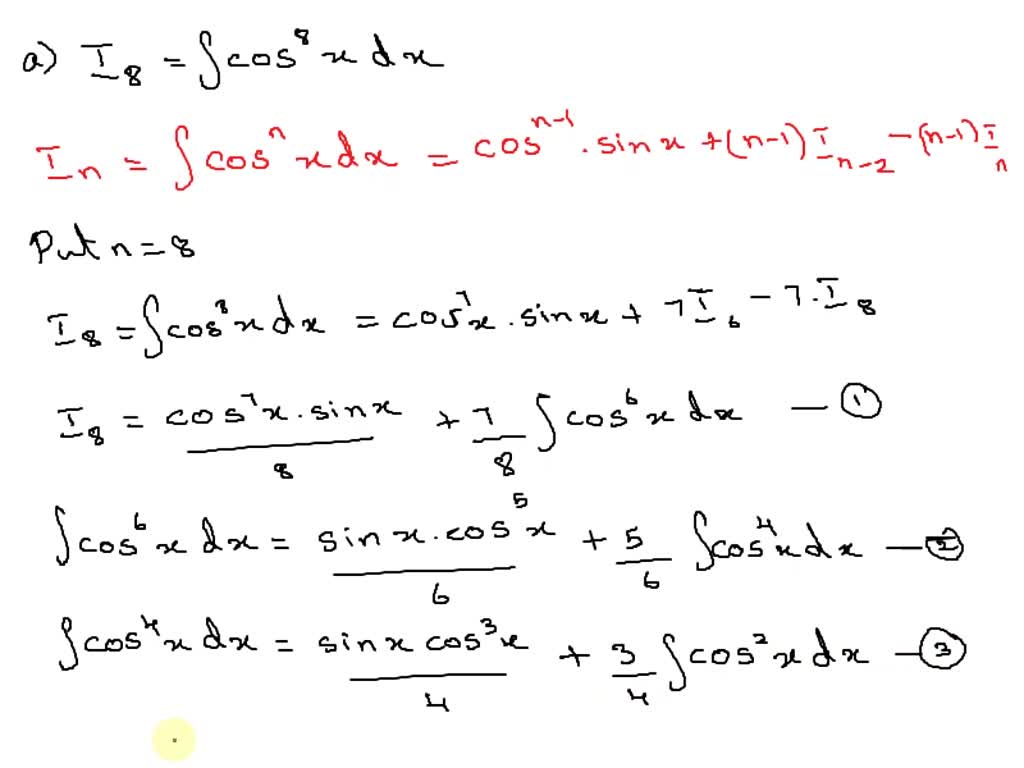 a) I₈ = ∫cos⁸ x dx
Iₙ = ∫cosⁿ x dx = cosⁿ⁻¹ . sin x + (n-1) Iₙ₋₂ - (n-1) Iₙ
Put n = 8
I₈ = ∫cos⁸ x dx = cos⁷ x . sin x + 7 I₆ - 7 . I₈
I₈ = cos⁷ x . sin x / 8 + 7/8 ∫cos⁶ x dx — ①
∫cos⁶ x dx = sin x . cos⁵ x / 6 + 5/6 ∫cos⁴ x dx — ②
∫cos⁴ x dx = sin x cos³ x / 4 + 3/4 ∫cos² x dx — ③